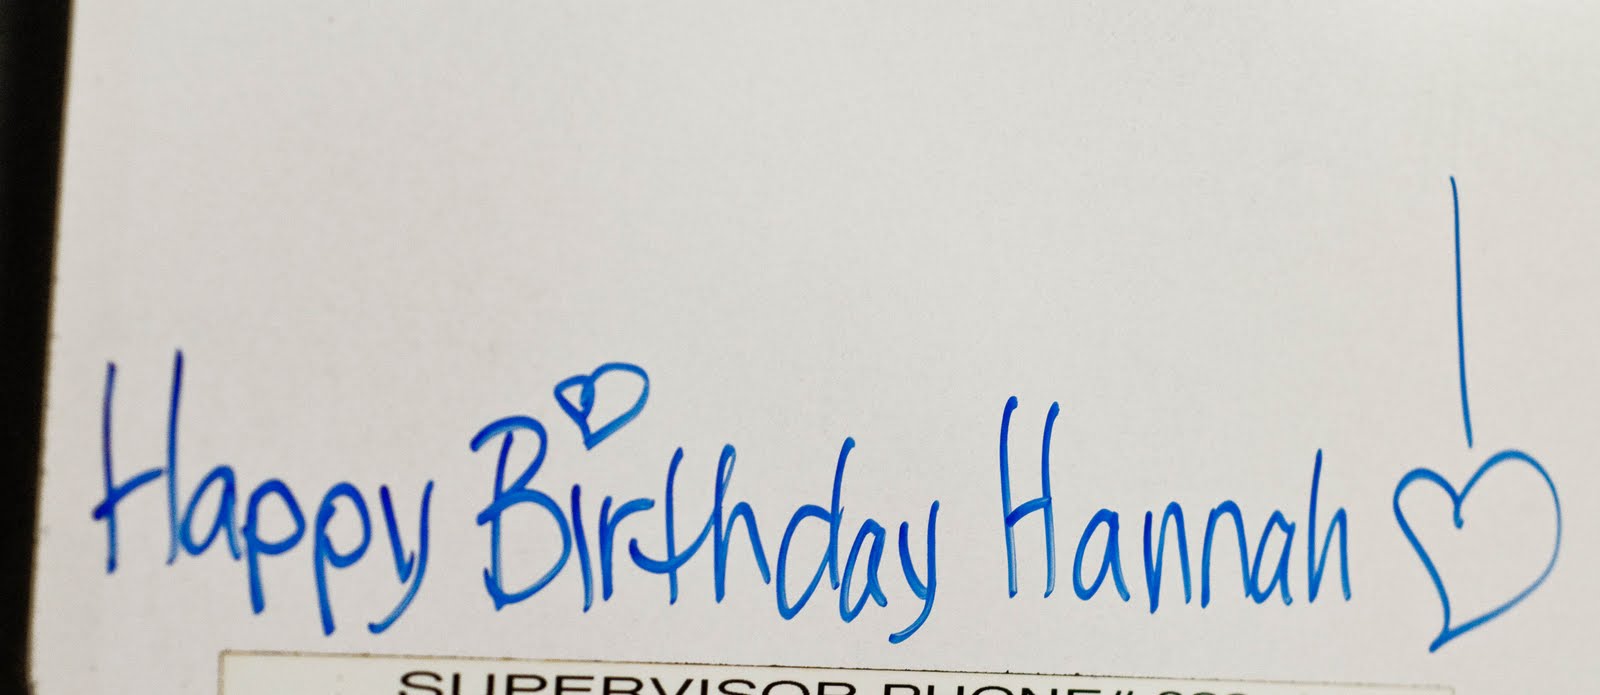 Happy Birthday Hannah!
SUPERVISOR PHONE#